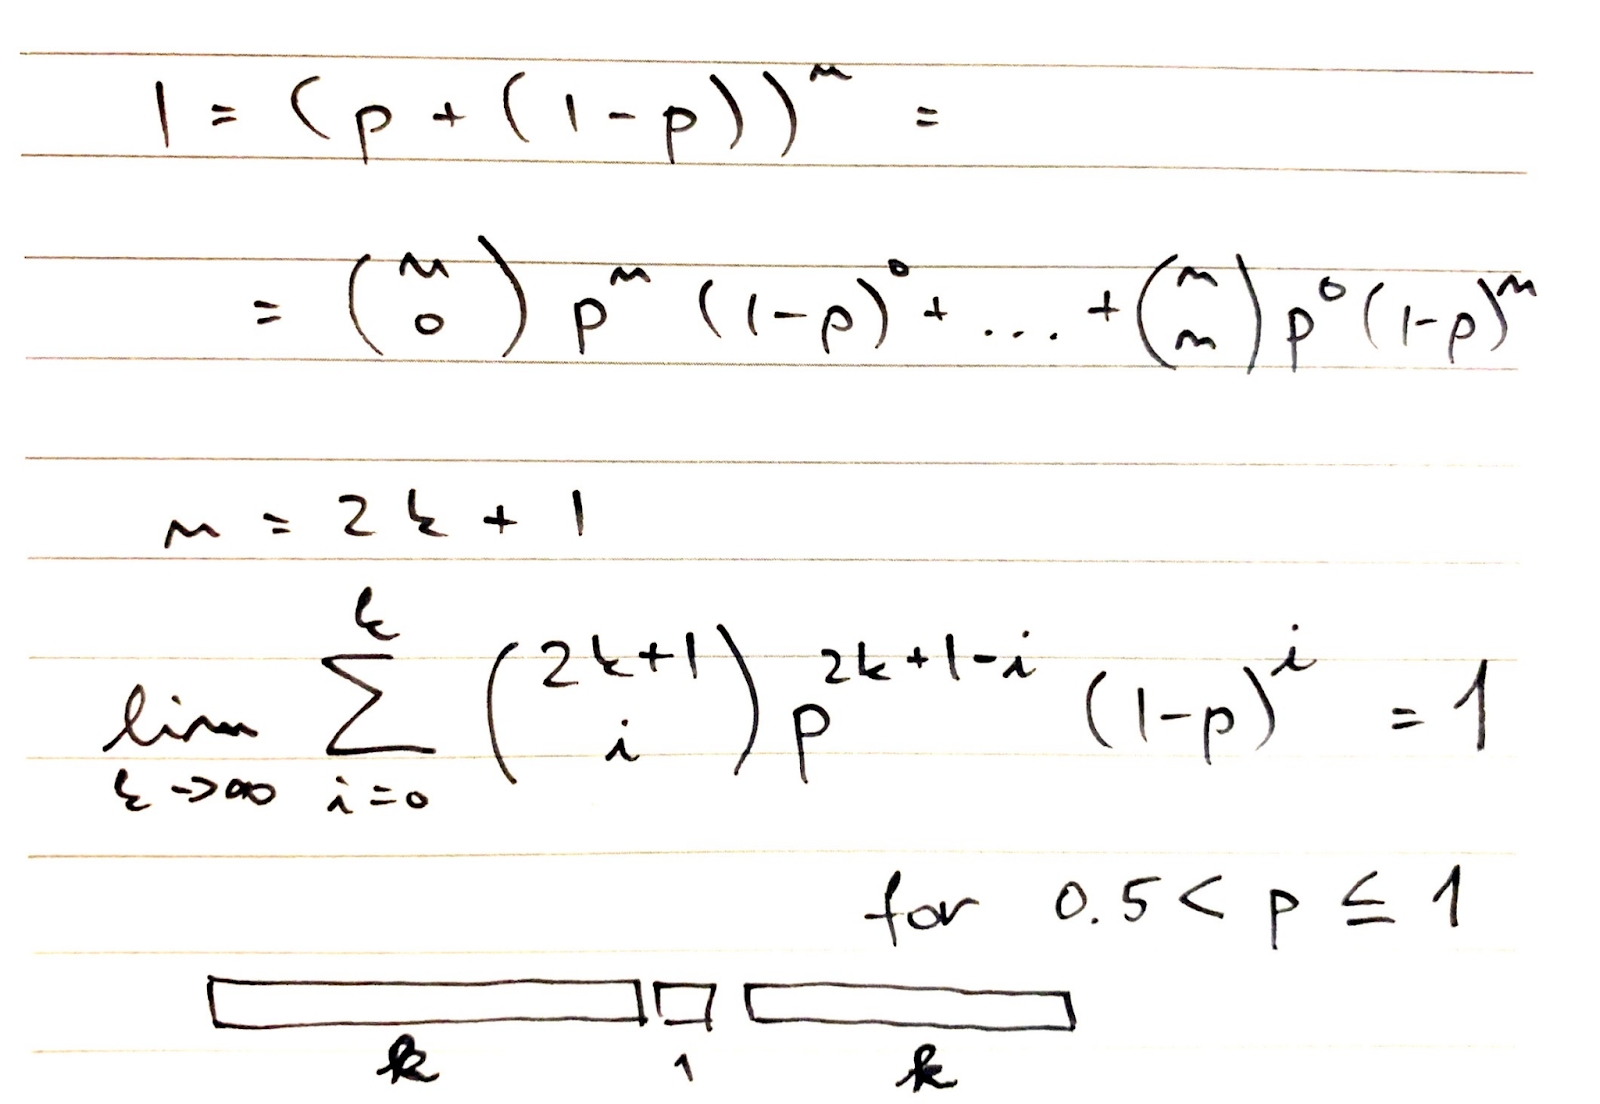 1 = (p + (1-p))^n =
= (n 0) p^n (1-p)^0 + ... + (n n) p^0 (1-p)^n
n = 2k + 1
lim k→∞ ∑ i=0 k (2k+1 i) p^2k+1-i (1-p)^i = 1
for 0.5 < p ≤ 1
k 1 k